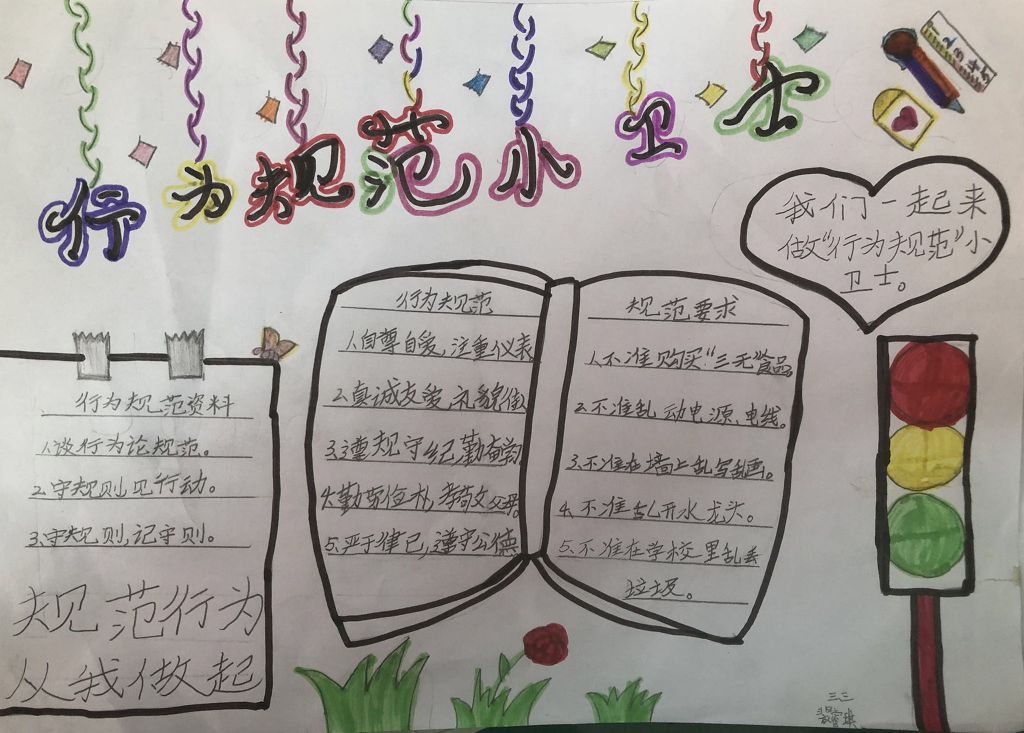 行为规范小卫士
我们一起来
做“行为规范”小
卫士。
行为规范
1.自尊自爱,注重仪表
2.真诚友爱,礼貌待
3.遵规守纪勤奋学
4.勤劳俭朴,孝敬父母。
5.严于律己,遵守公德
规范要求
1.不准购买“三无”食品。
2.不准乱动电源、电线。
3.不准在墙上乱写乱画。
4.不准乱开水龙头。
5.不准在学校里乱丢
垃圾。
行为规范资料
1.谈行为论规范。
2.守规则见行动。
3.守规则,记守则。
规范行为
从我做起
三三